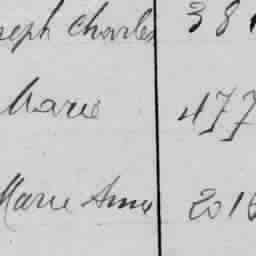 seph Charles 381
Marie 477
Marie Anne 2016